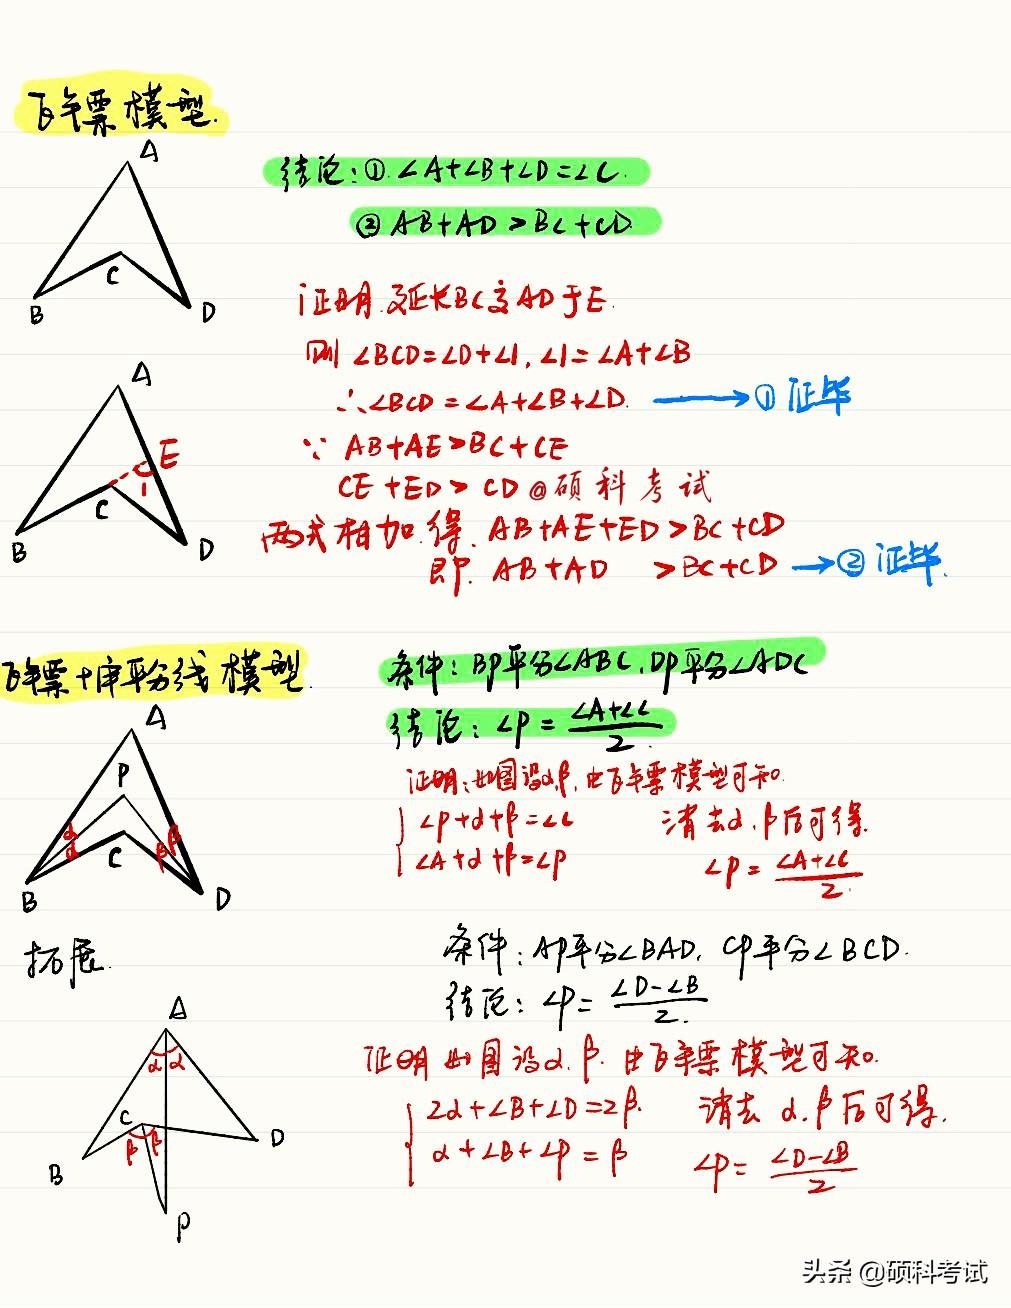 飞镖模型.
A
结论:①.∠A+∠B+∠D=∠C.
②AB+AD>BC+CD.
C
B
D
证明.延长BC交AD于E.
则∠BCD=∠D+∠1,∠1=∠A+∠B
A
∴∠BCD=∠A+∠B+∠D. → ①证毕
∵ AB+AE>BC+CE
E
1
C
CE+ED>CD @硕科考试
B
D
两式相加.得. AB+AE+ED>BC+CD
即. AB+AD >BC+CD → ②证毕.
飞镖+角平分线模型.
条件:BP平分∠ABC,DP平分∠ADC
结论:∠P=(∠A+∠C)/2.
A
P
证明:如图设α,β,由飞镖模型可知。
{∠P+α+β=∠C
∠A+α+β=∠P
消去α.β后可得.
∠P=(∠A+∠C)/2.
α
α
β
β
C
B
D
拓展.
条件:AP平分∠BAD, CP平分∠BCD.
结论:∠P=(∠D-∠B)/2.
A
证明 如图设α.β.由飞镖模型可知。
α α
{2α+∠B+∠D=2β.
α+∠B+∠P=β
消去 α.β后可得.
∠P=(∠D-∠B)/2
C
β β
D
B
P
头条 @硕科考试